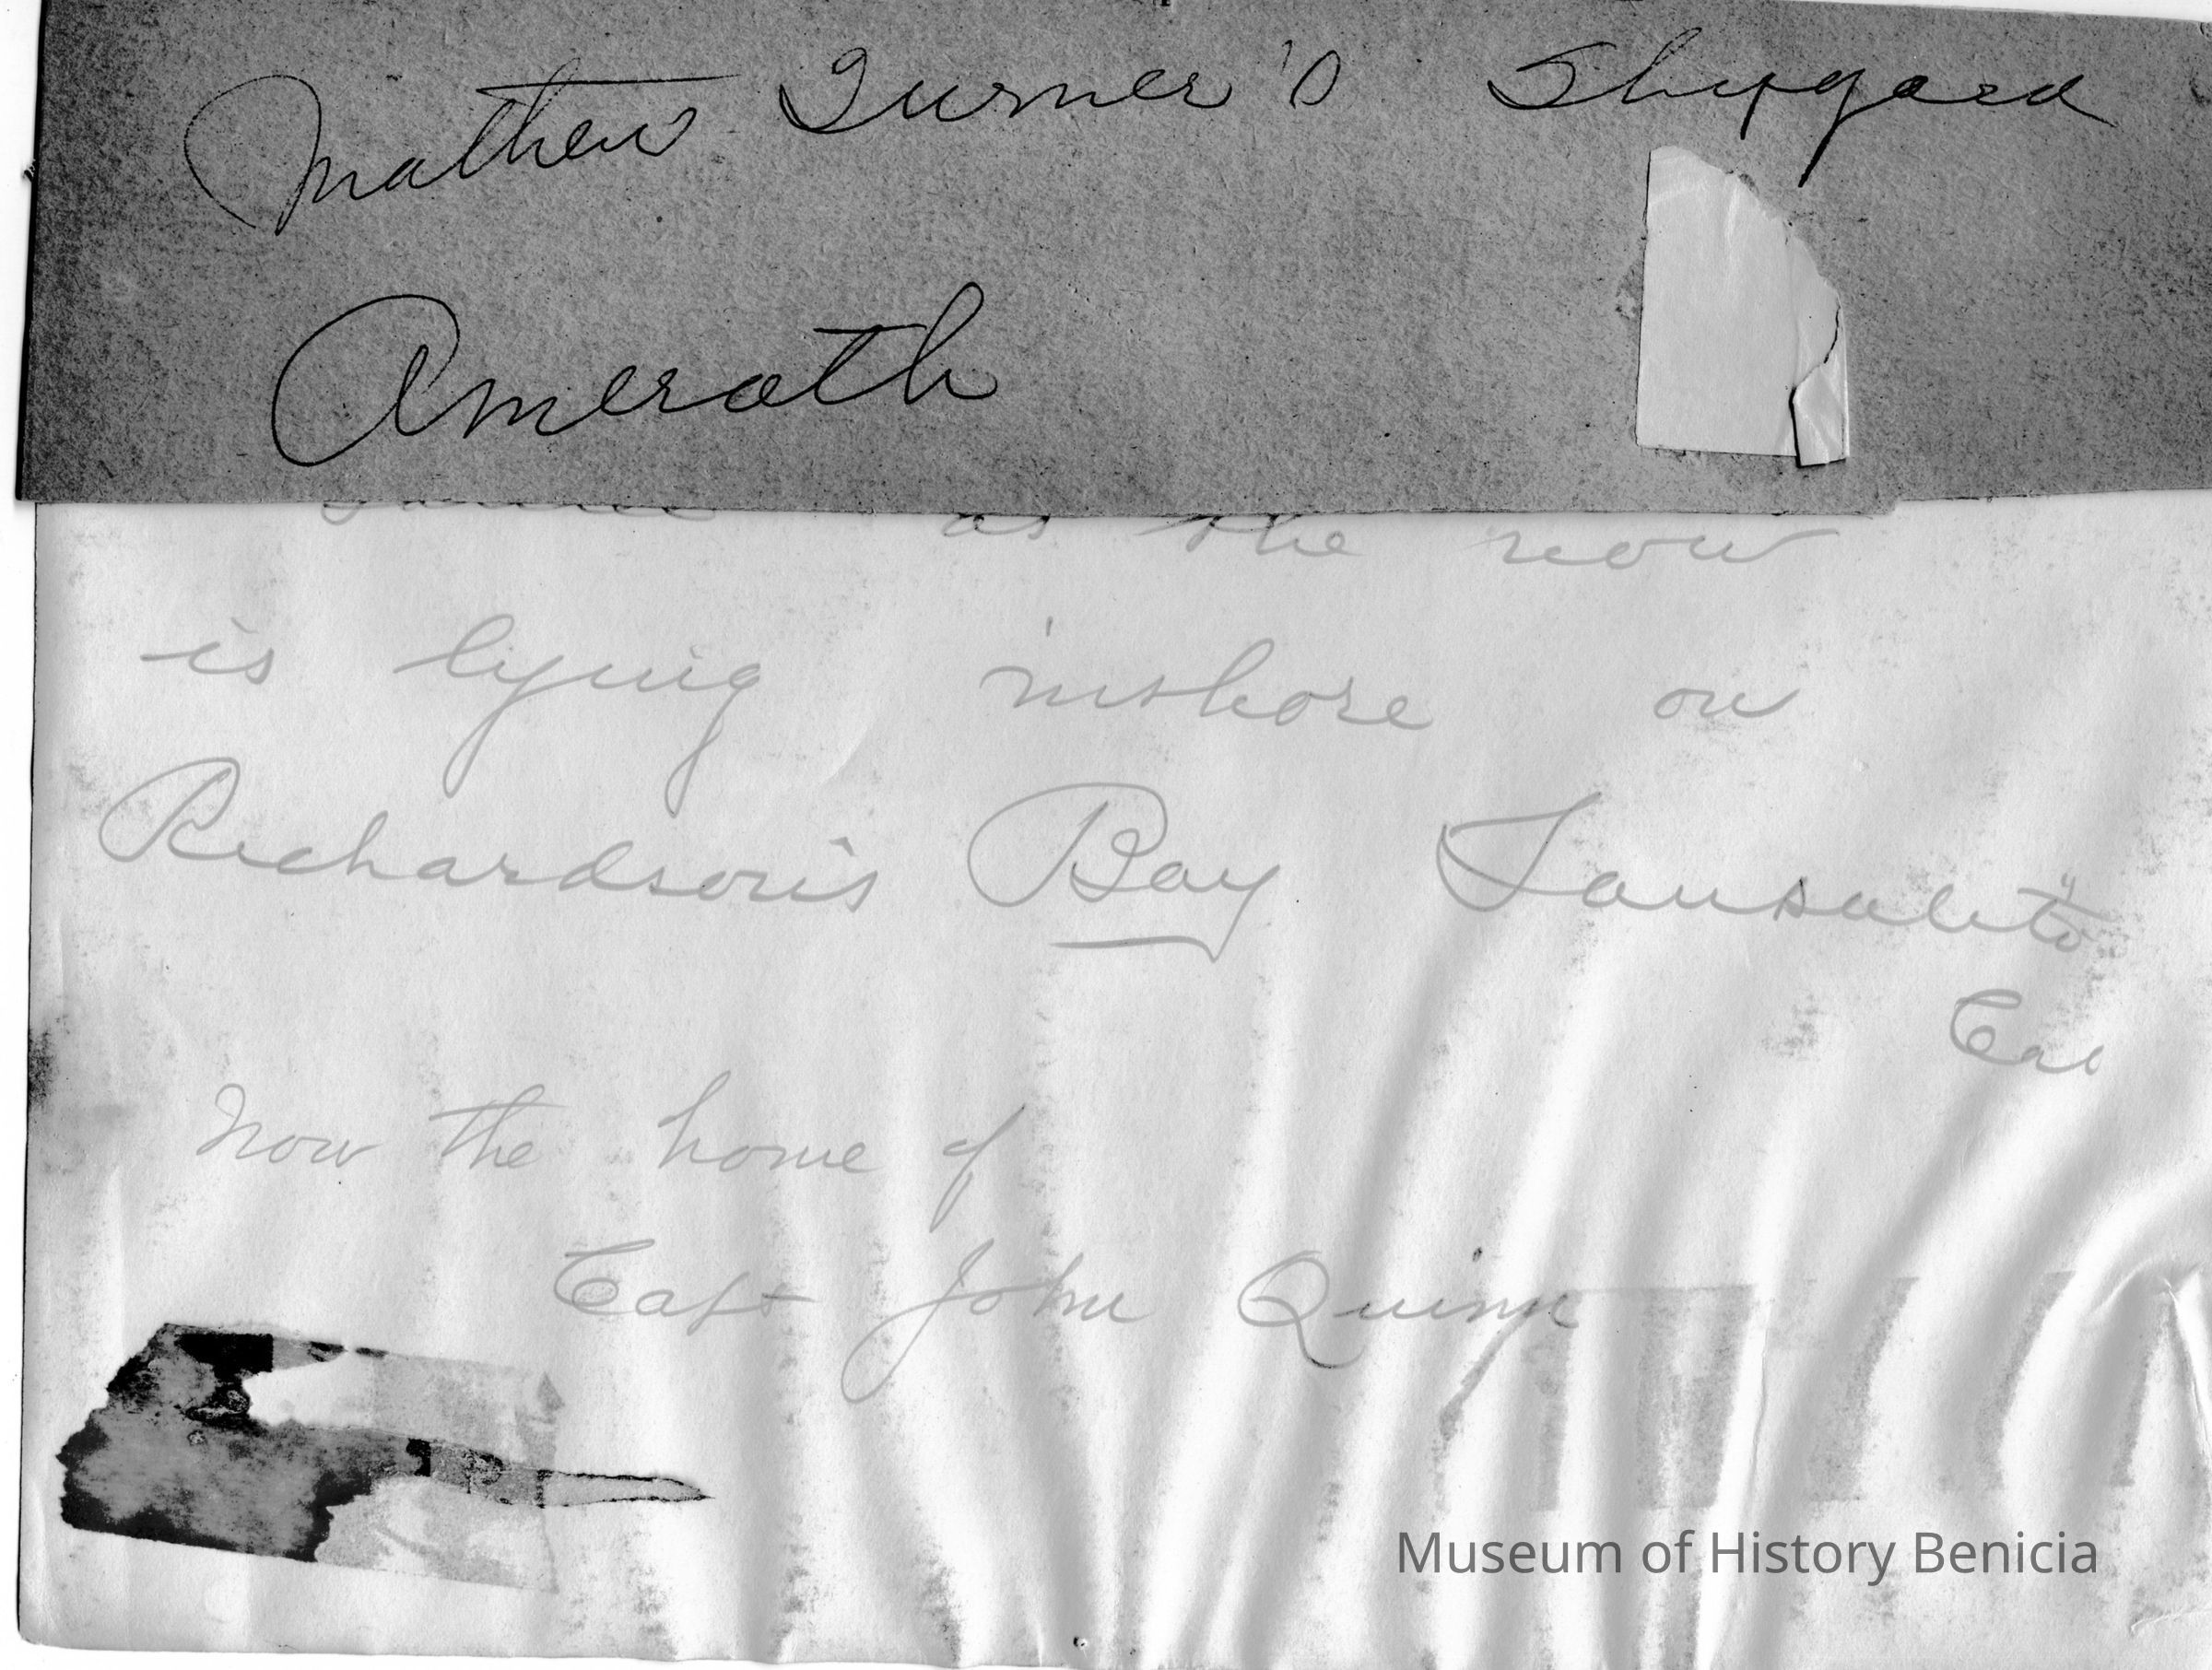 Mathew Turner's Shipyard
Amerath
same as she now
is lying inshore on
Richardson's Bay Sausalito
Cal
Now the home of
Capt John Quinn
Museum of History Benicia